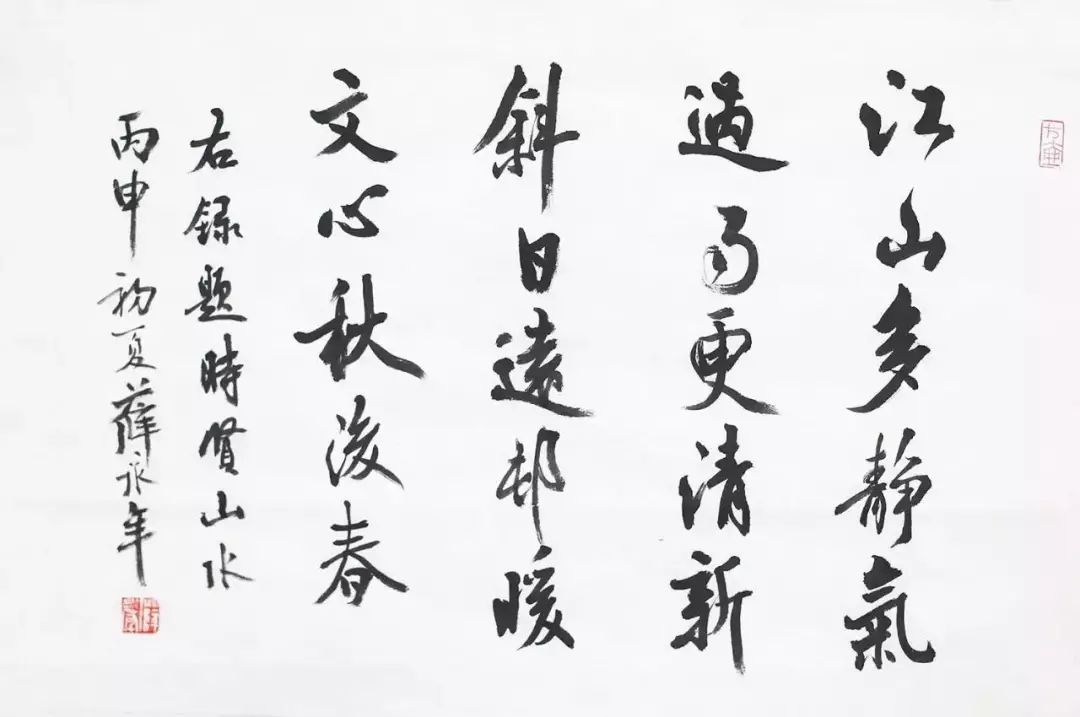 江山多静氣
過雨更清新
斜日遠邨暖
文心秋後春
右録題時賢山水
丙申初夏薛永年